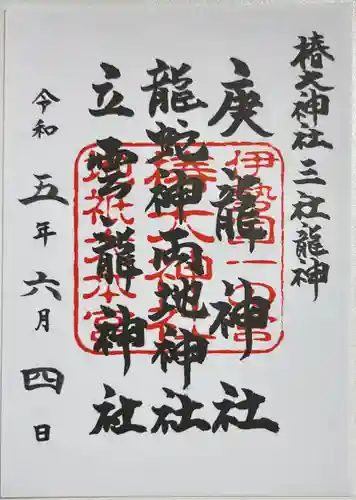 椿大神社三社龍神
庚龍神社
龍蛇神両地神社
立雲龍神社
令和五年六月四日
伊勢国一宮
椿大神社